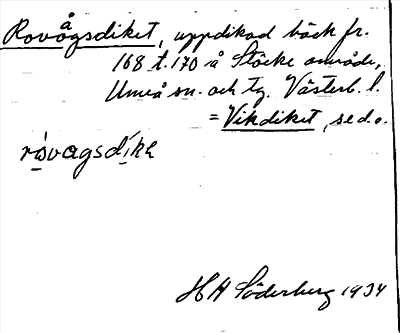 Rovågsdiket, uppdikad bäck fr.
168 t. 170 å Stöcke område,
Umeå sn. och tg. Västerb. l.
= Vikdiket, se d.o.
rövagsdíkə
H H Söderberg 1934